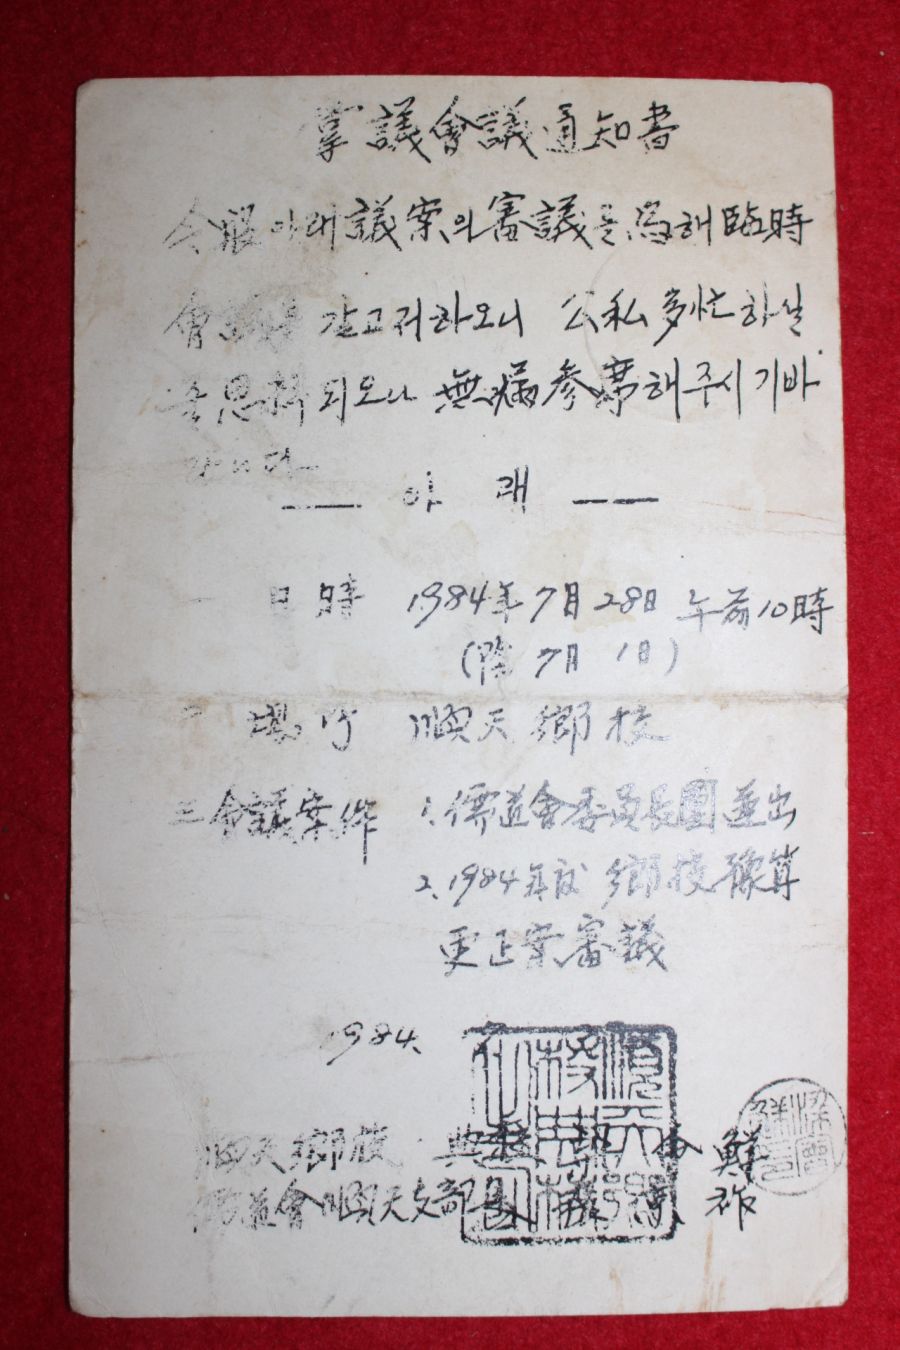 掌議會議通知書
今般 아래 議案의 審議를 爲해 臨時
會議를 갖고저하오니 公私多忙하실
줄 思料되오나 無漏參席해주시기바
랍니다
아 래
一 日時 1984年 7月 28日 午前10時
(陰 7月 1日)
二 場所 順天鄕校
三 會議案件 1. 儒道會委員長團選出
2. 1984年度 鄕校豫算
更正案審議
1984. 7.
順天鄕校 典校
儒道會順天支部長